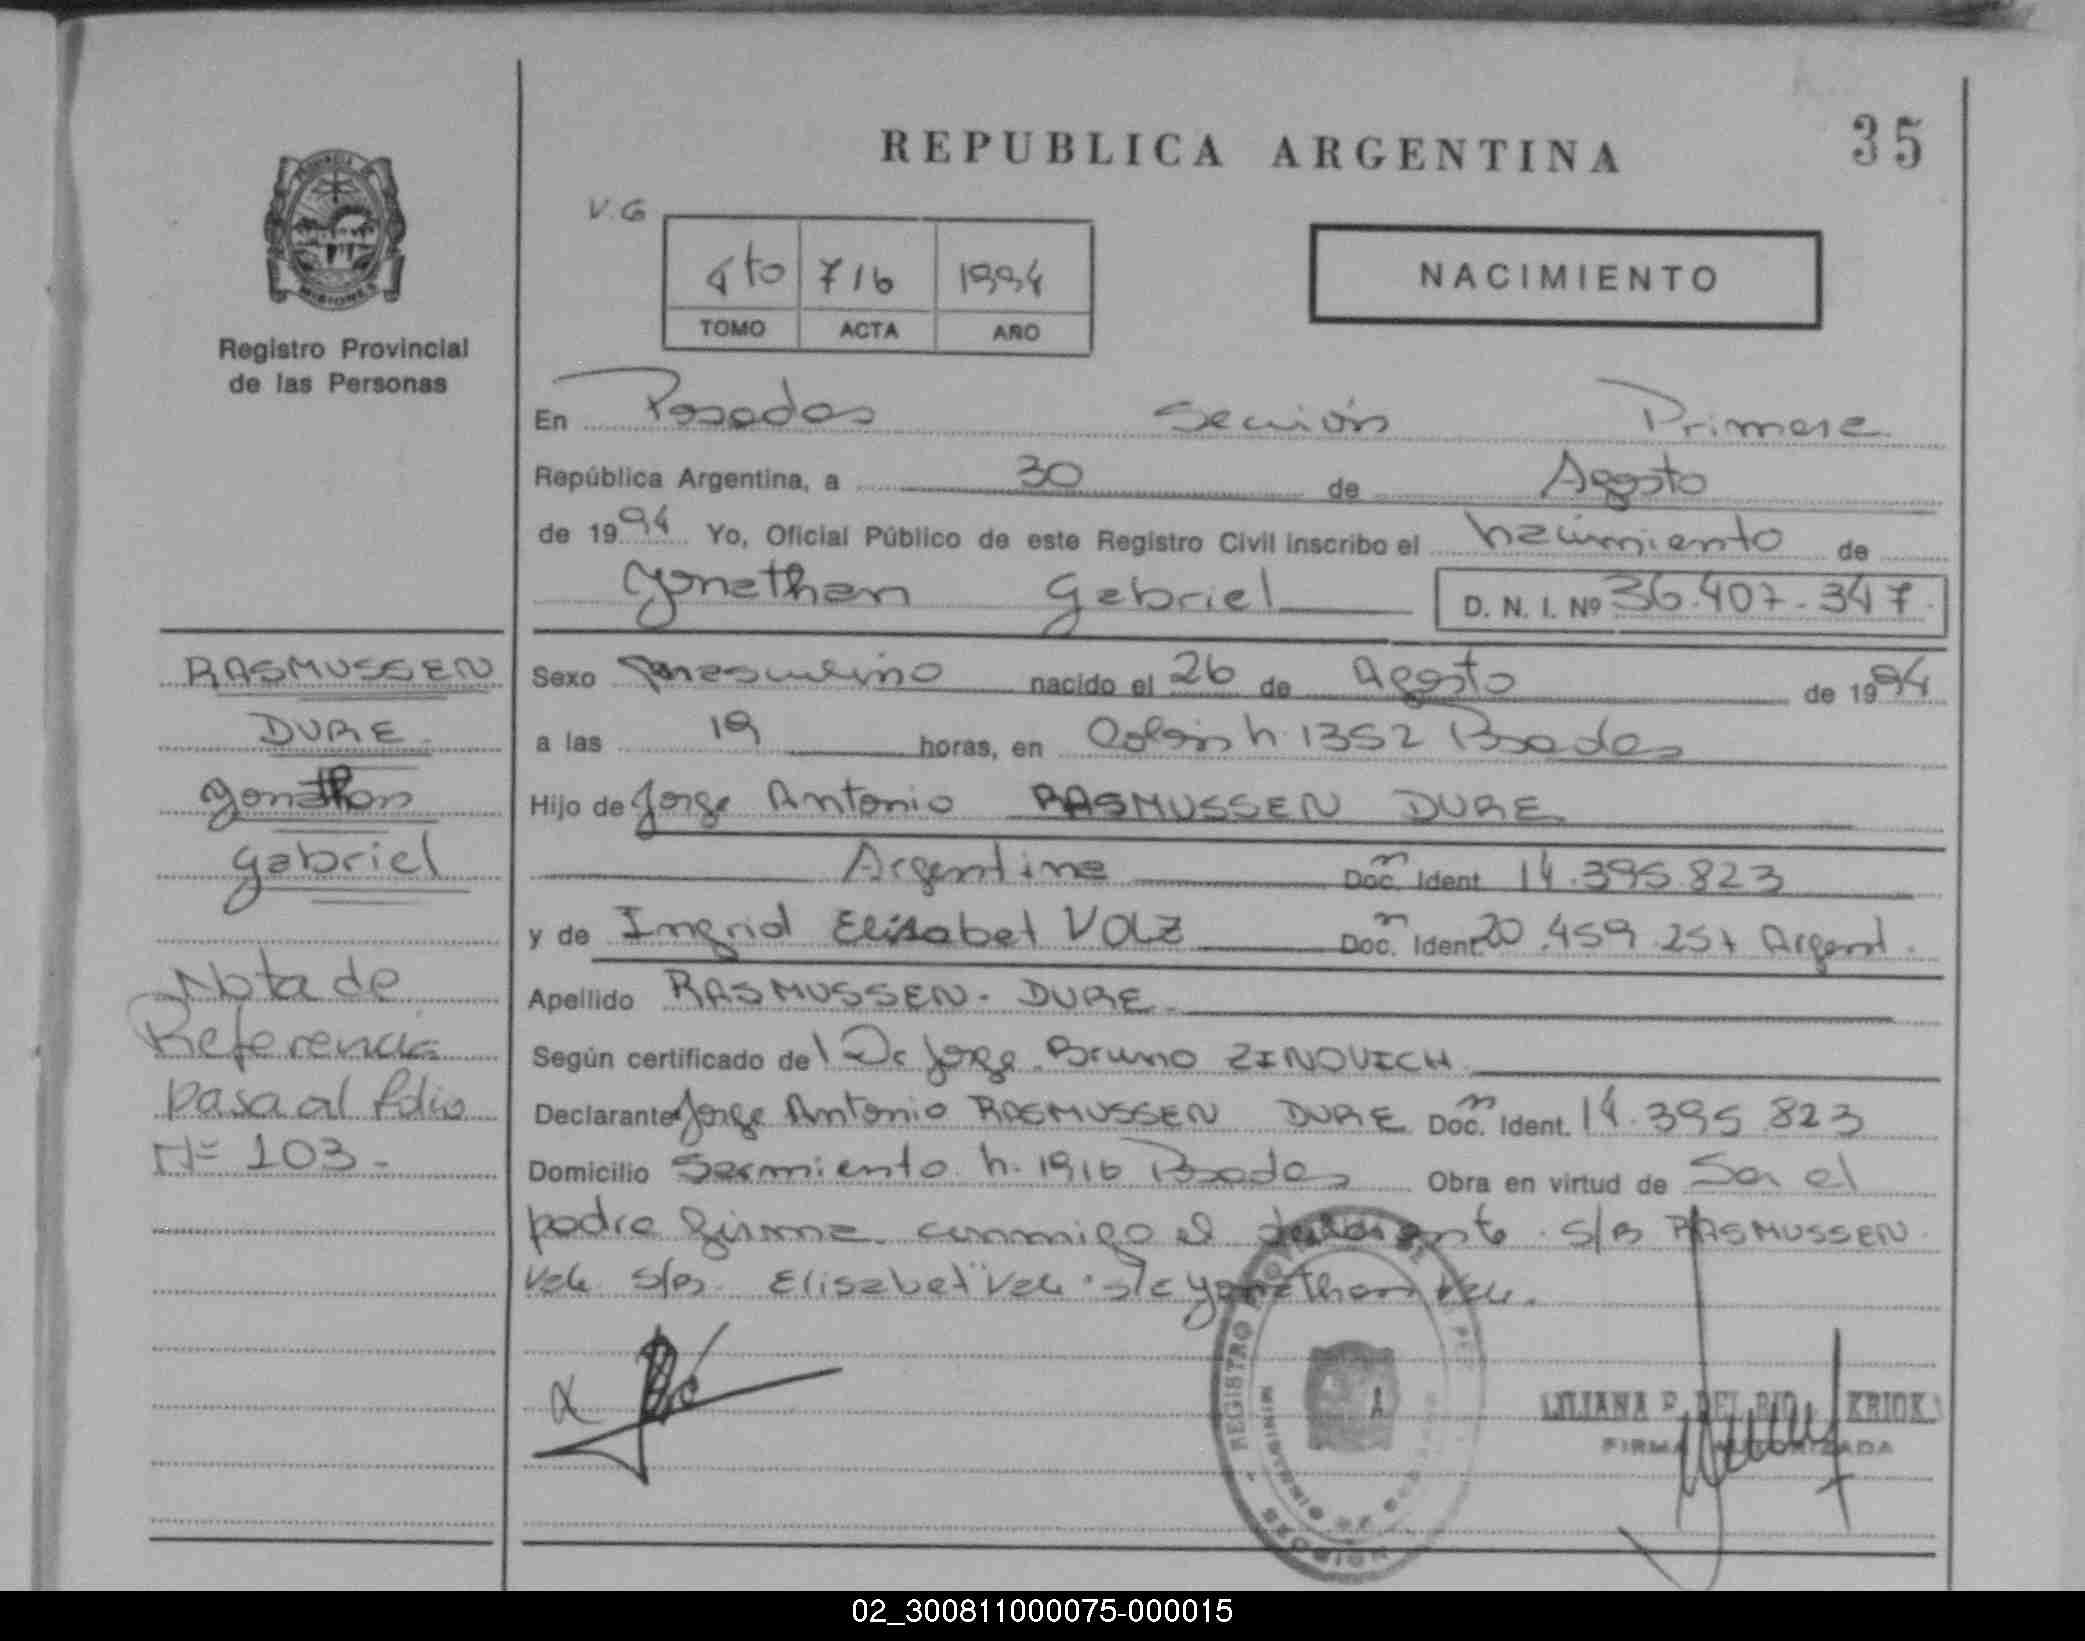 35
REPUBLICA ARGENTINA
V.G
4to 716 1994
TOMO ACTA AÑO
NACIMIENTO
MISIONES
Registro Provincial
de las Personas
En Posadas Sección Primera
República Argentina, a 30 de Agosto
de 1994 Yo, Oficial Público de este Registro Civil inscribo el nacimiento de
Yonathan Gabriel D. N. I. Nº 36.407.347.
Sexo masculino nacido el 26 de Agosto de 1994
a las 19 horas, en Colón h. 1352 Posadas
Hijo de Jorge Antonio RASMUSSEN DURE
Argentina Doc. Ident 14.395.823
y de Ingrid Elisabet VOLZ Doc. Ident. 20.459.257 Argent.
Apellido RASMUSSEN - DURE
Según certificado del Dr Jorge Bruno ZINOVICH
Declarante Jorge Antonio RASMUSSEN DURE Doc. Ident. 14.395.823
Domicilio Sarmiento h. 1916 Posadas Obra en virtud de Ser el
padre firma conmigo el declarante. s/b RASMUSSEN
Vale s/b. Elisabet Vale s/c Yonathan Vale.
RASMUSSEN
DURE
Yonathan
Gabriel
Nota de
Referencia
pasa al folio
Nº 103-
REGISTRO
MINISTERIO DE GOBIERNO
MISIONES
LILIANA DEL RIO KRIOK
FIRMA AUTORIZADA
02_300811000075-000015